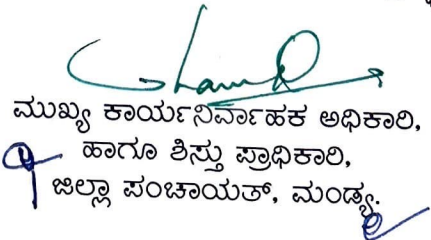 ಮುಖ್ಯ ಕಾರ್ಯನಿರ್ವಾಹಕ ಅಧಿಕಾರಿ,
ಹಾಗೂ ಶಿಸ್ತು ಪ್ರಾಧಿಕಾರಿ,
ಜಿಲ್ಲಾ ಪಂಚಾಯತ್, ಮಂಡ್ಯ.